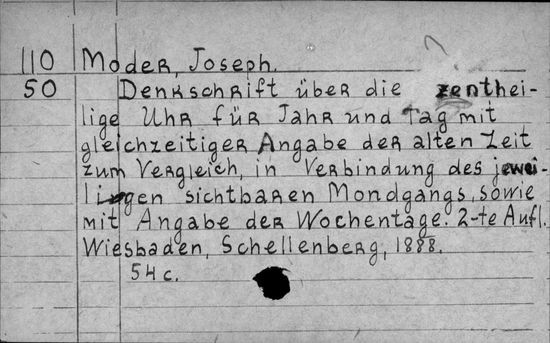 110 Moder, Joseph.
50 Denkschrift über die zenthei-
lige Uhr für Jahr und Tag mit
gleichzeitiger Angabe der alten Zeit
zum Vergleich, in Verbindung des jewei-
ligen sichtbaren Mondgangs, sowie
mit Angabe der Wochentage. 2-te Aufl.
Wiesbaden, Schellenberg, 1888.
54 c.